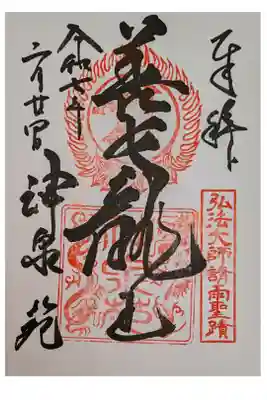 奉拝
弘法大師請雨聖蹟
善女龍王
令和七年
月廿
神泉苑